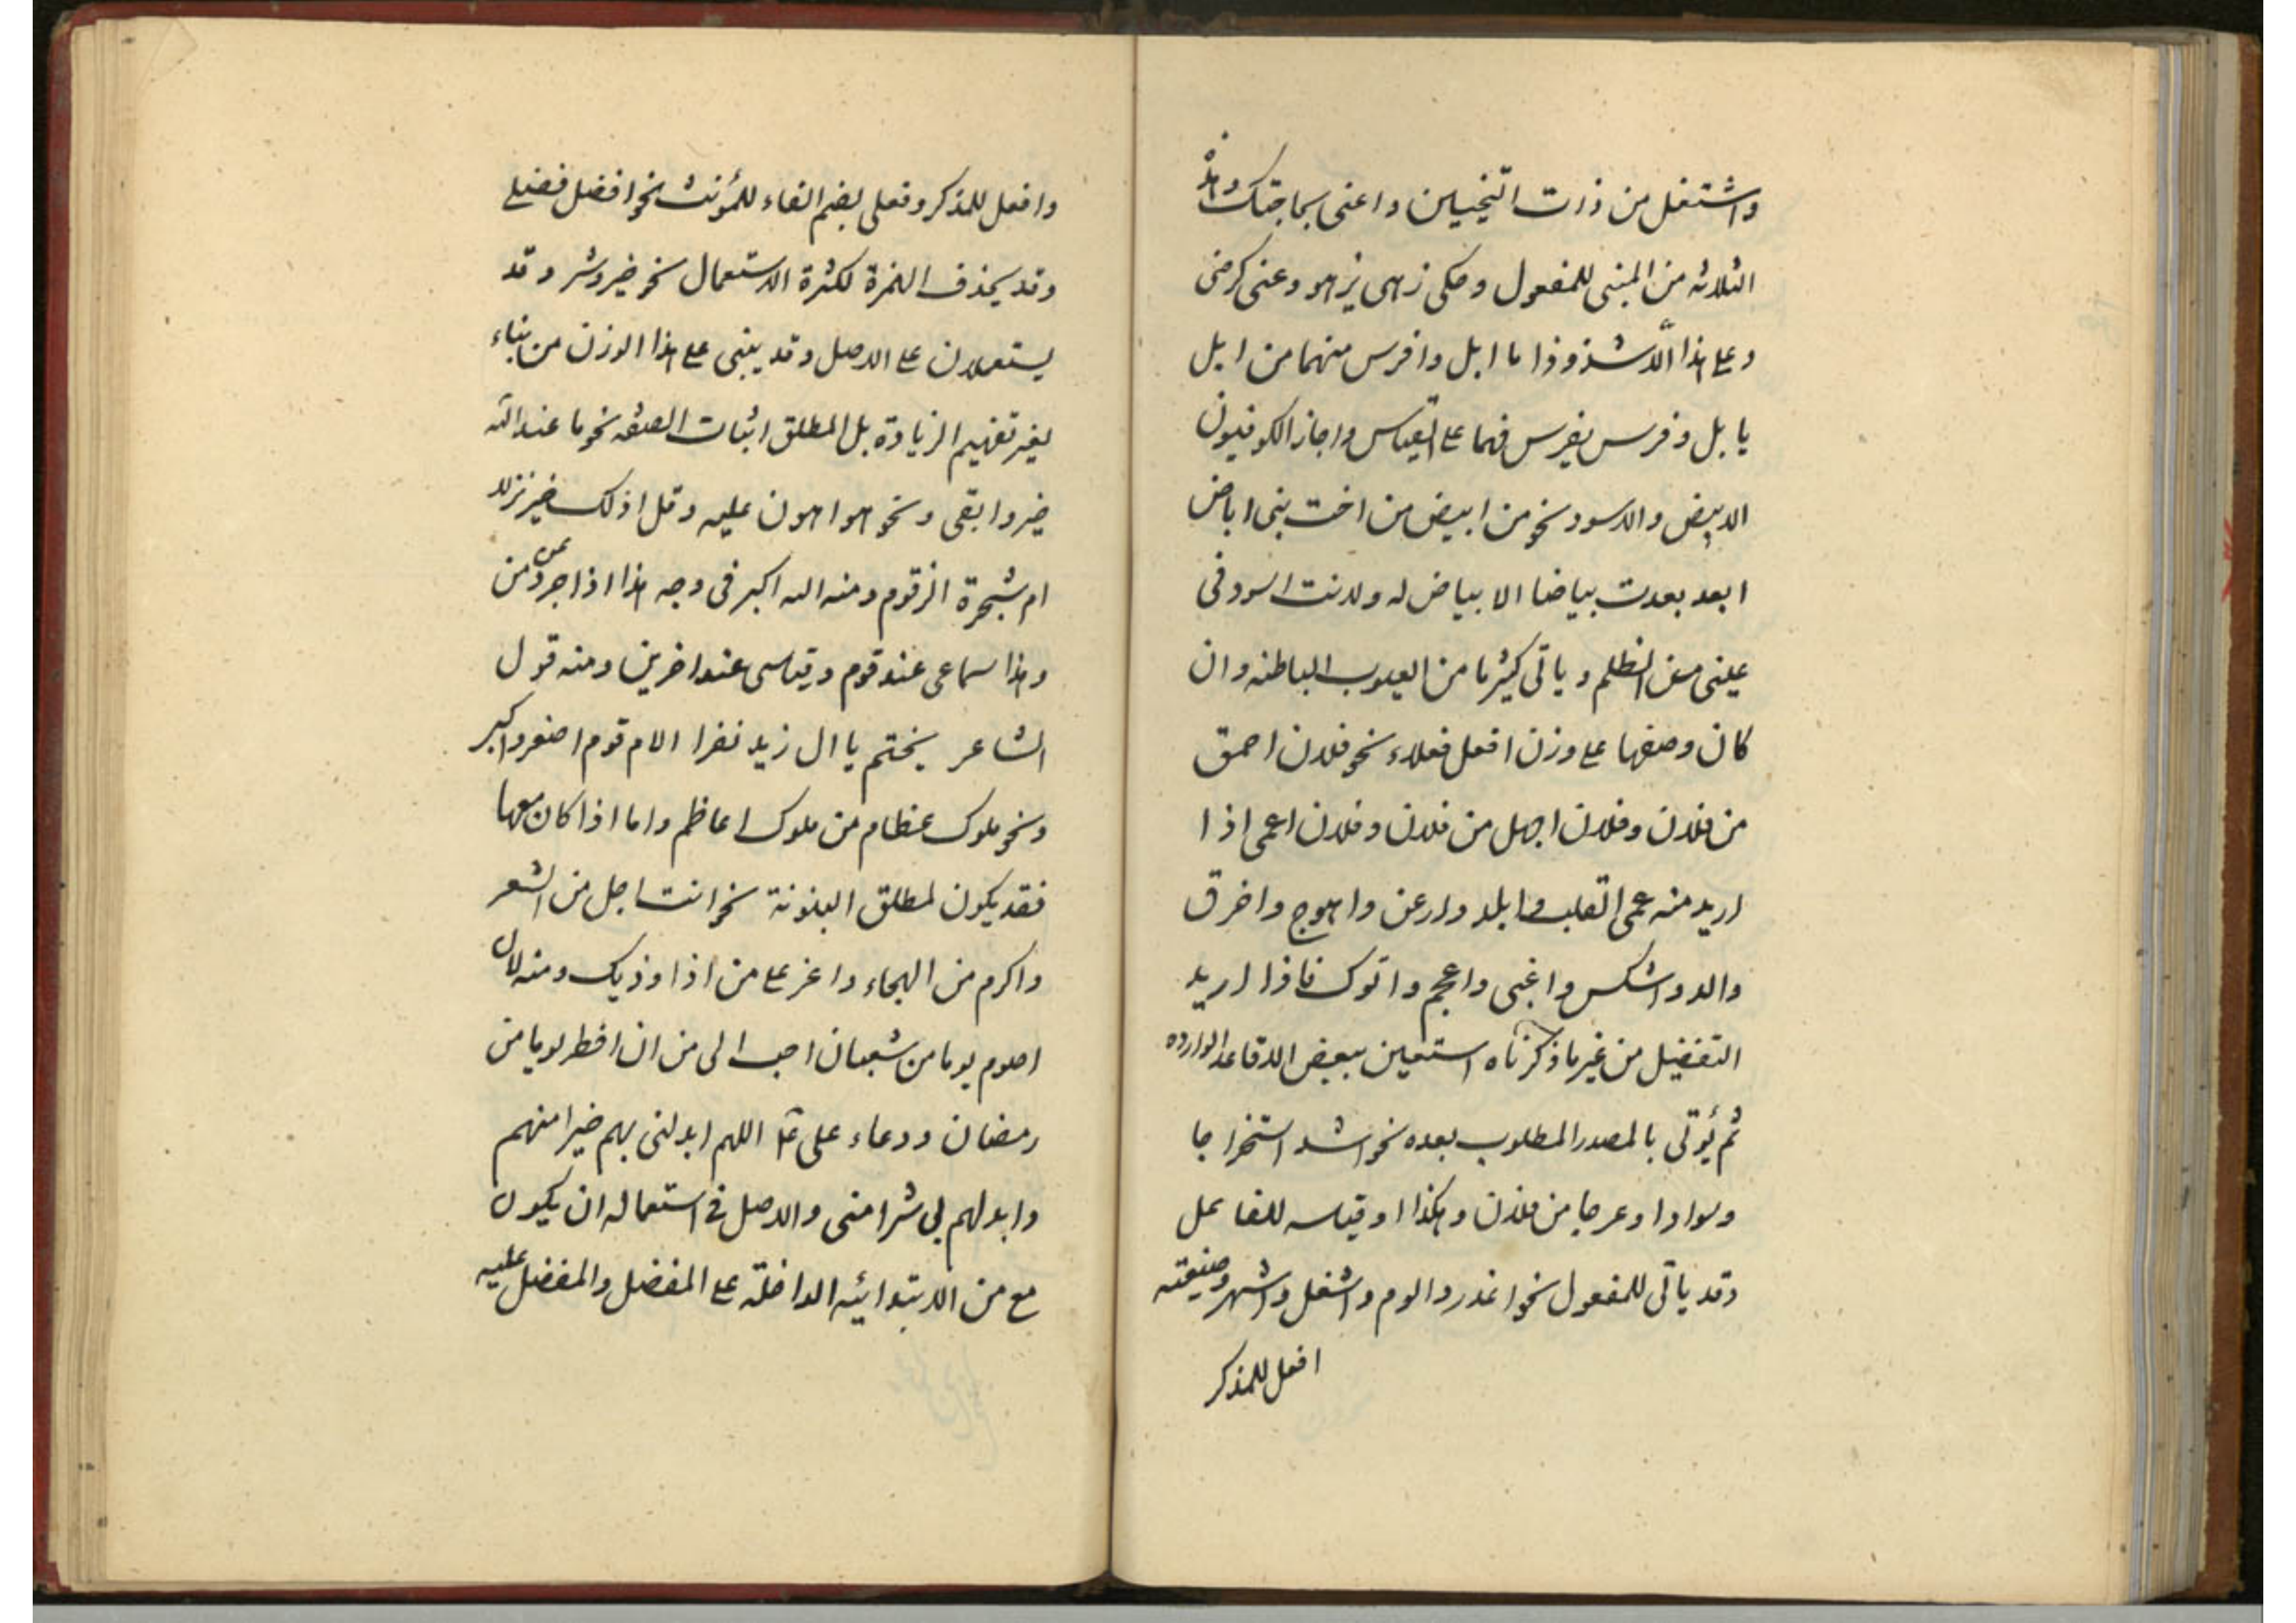 واشتغل من ذات النحيين واعنى بحاجتك وهذه
الثلاثه من المبنى للمفعول وحكى زهى يزهو وعنى كرضى
وعلى هذا لا شذوذا ما ابل وافرس منهما من ابل
يابل وفرس يفرس فهما على القياس واجاز الكوفيون
الابيض والاسود نحو من ابيض من اخت بنى اباض
ابعد بعدت بياضا لا بياض له ولانت اسود فى
عينى من الظلم وياتى كثيرا من العيوب الباطنه وان
كان وصفها على وزن افعل فعلاء نحو فلان احمق
من فلان وفلان اجهل من فلان وفلان اعمى اذا
اريد منه عمى القلب وابلد وارعن واهوج واخرق
والد واشكس واغبى واعجم وانوك فاذا اريد
التفضيل من غير ما ذكرناه استعين ببعض الافاعل الوارده
ثم يُؤتى بالمصدر المطلوب بعده نحو اشد استخراجا
وسوادا وعرجا من فلان وهكذا وقياسه للفاعل
وقد ياتى للمفعول نحو اعذر والوم واشغل واشهر وصيغته
افعل للمذكر
وافعل للمذكر وفعلى بضم الفاء للمؤنث نحو افضل فضلى
وقد يحذف الهمزة لكثرة الاستعمال نحو خير وشر وقد
يستعملان على الاصل وقد يبنى على هذا الوزن من بناء
لغير تفهيم الزيادة بل المطلق اثبات الصفه نحو ما عند الله
خير وابقى ونحو هو اهون عليه وقل اذلك خير نزلا
ام شجرة الزقوم ومنه الله اكبر فى وجه هذا اذا جرد عن من
وهذا سماعى عند قوم وقياسى عند اخرين ومنه قول
الشاعر قبحتم يا ال زيد نفرا الام قوم اصغر واكبر
ونحو ملوك عظام من ملوك اعاظم واما اذا كان معها
فقد يكون لمطلق البينونة نحو انت اجل من الشعر
واكرم من الهجاء واعز على من اذا وذيك ومنه لان
اصوم يوما من شعبان احب الى من ان افطر يوما من
رمضان ودعاء على ع اللهم ابدلنى بهم خيرا منهم
وابدلهم بى شرا منى والاصل فى استعماله ان يكون
مع من الابتدائيه الداخلة على المفضل والمفضل عليه